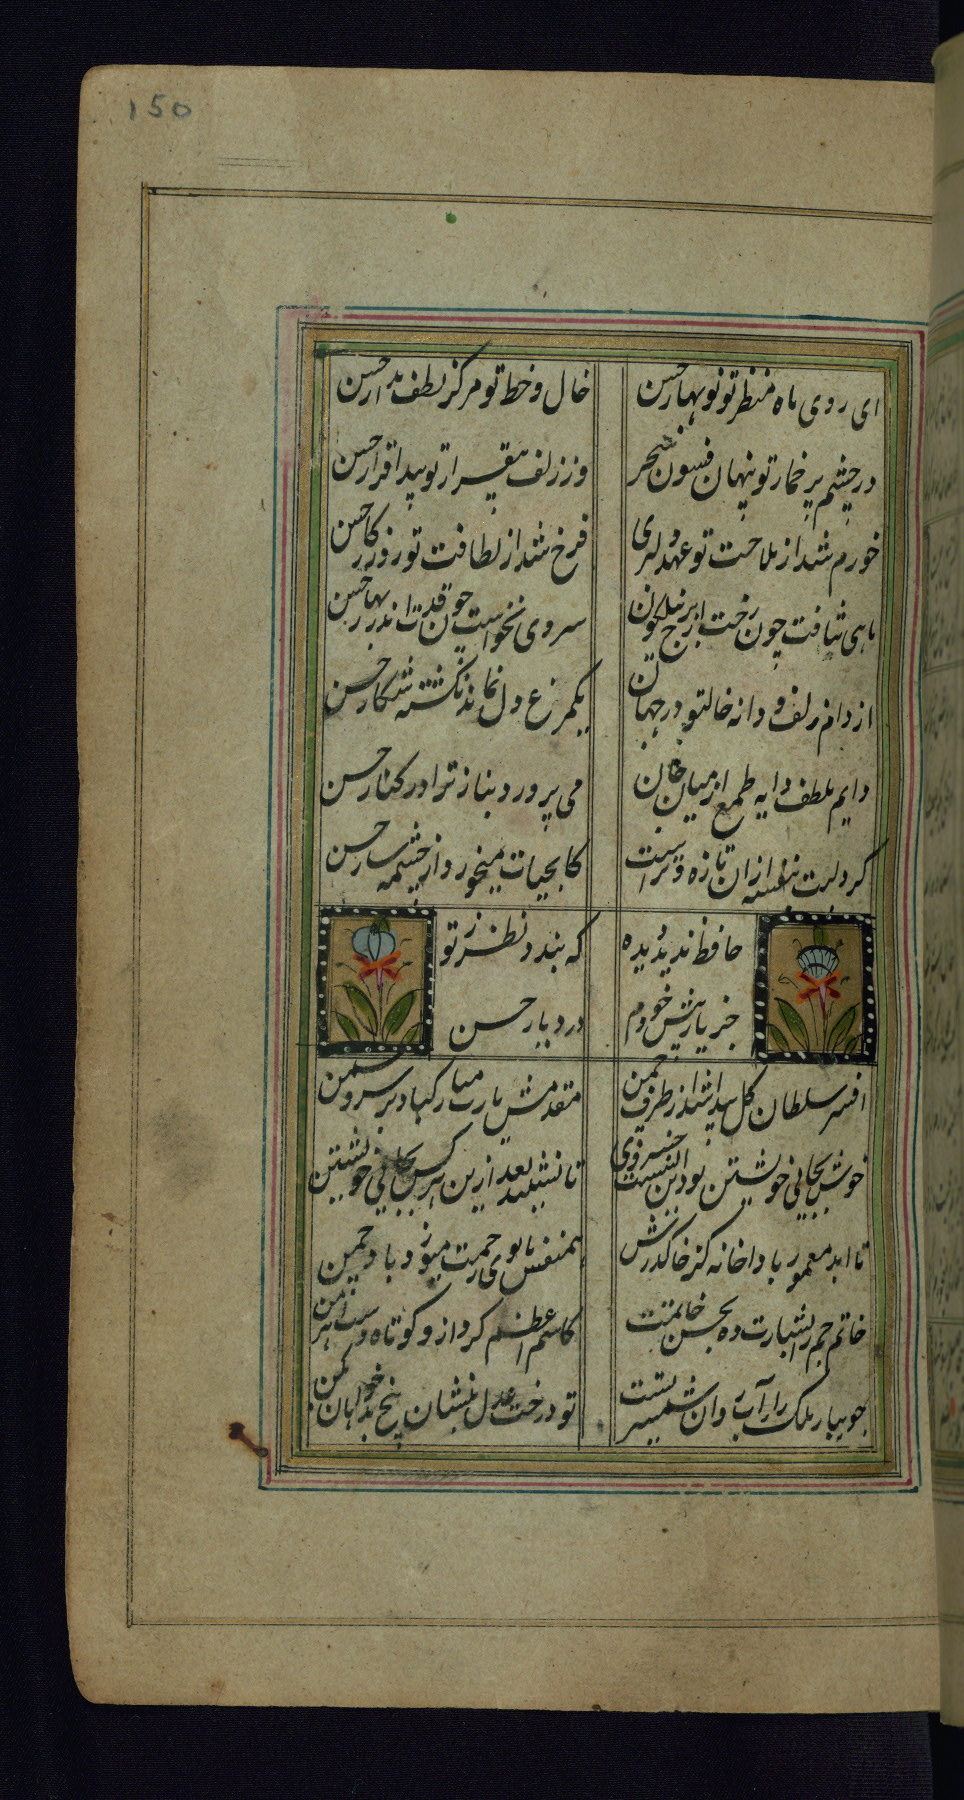 150
ای روی ماه منظر تو نوبهار حسن
خال و خط تو مرکز لطف و مدار حسن
در چشم پر خمار تو پنهان فسون سحر
در زلف بیقرار تو پیدا قرار حسن
خورم شد از ملاحت تو عهد دلبری
فرخ شد از لطافت تو روزگار حسن
ماهی نتافت چون رخت از برج نیکوئی
سروی نخواست چون قدت اندر بهار حسن
از دام زلف و دانه خال تو در جهان
یکمرغ دل نماند نگشته شکار حسن
دایم بلطف دایه طبع از میان جان
می پرورد بناز ترا در کنار حسن
کرد لبت بنفشه از ان تازه و تر است
کابحیات میخورد از چشمه سار حسن
حافظ ندید دیده
که بندد نظر ز تو
جز یار نیش خودم
در دیار حسن
افسر سلطان کل پیدا شد از طرف چمن
مقدمش یارب مبارکباد بر سرو و سمن
خوش بجای خویشتن بود این نشست خسروی
تا نشیند بعد ازین هر کس بجای خویشتن
تا ابد معمور باد اخانه کز خاک درش
همنفس با بوی رحمت میوزد باد چمن
خاتم جم را بشارت ده بحسن خاتمت
کاسم اعظم کرد ازو کوتاه دست اهرمن
جویبار ملک را آب روان شمشیر تست
تو درخت عدل بنشان بیخ بدخواهان بکن